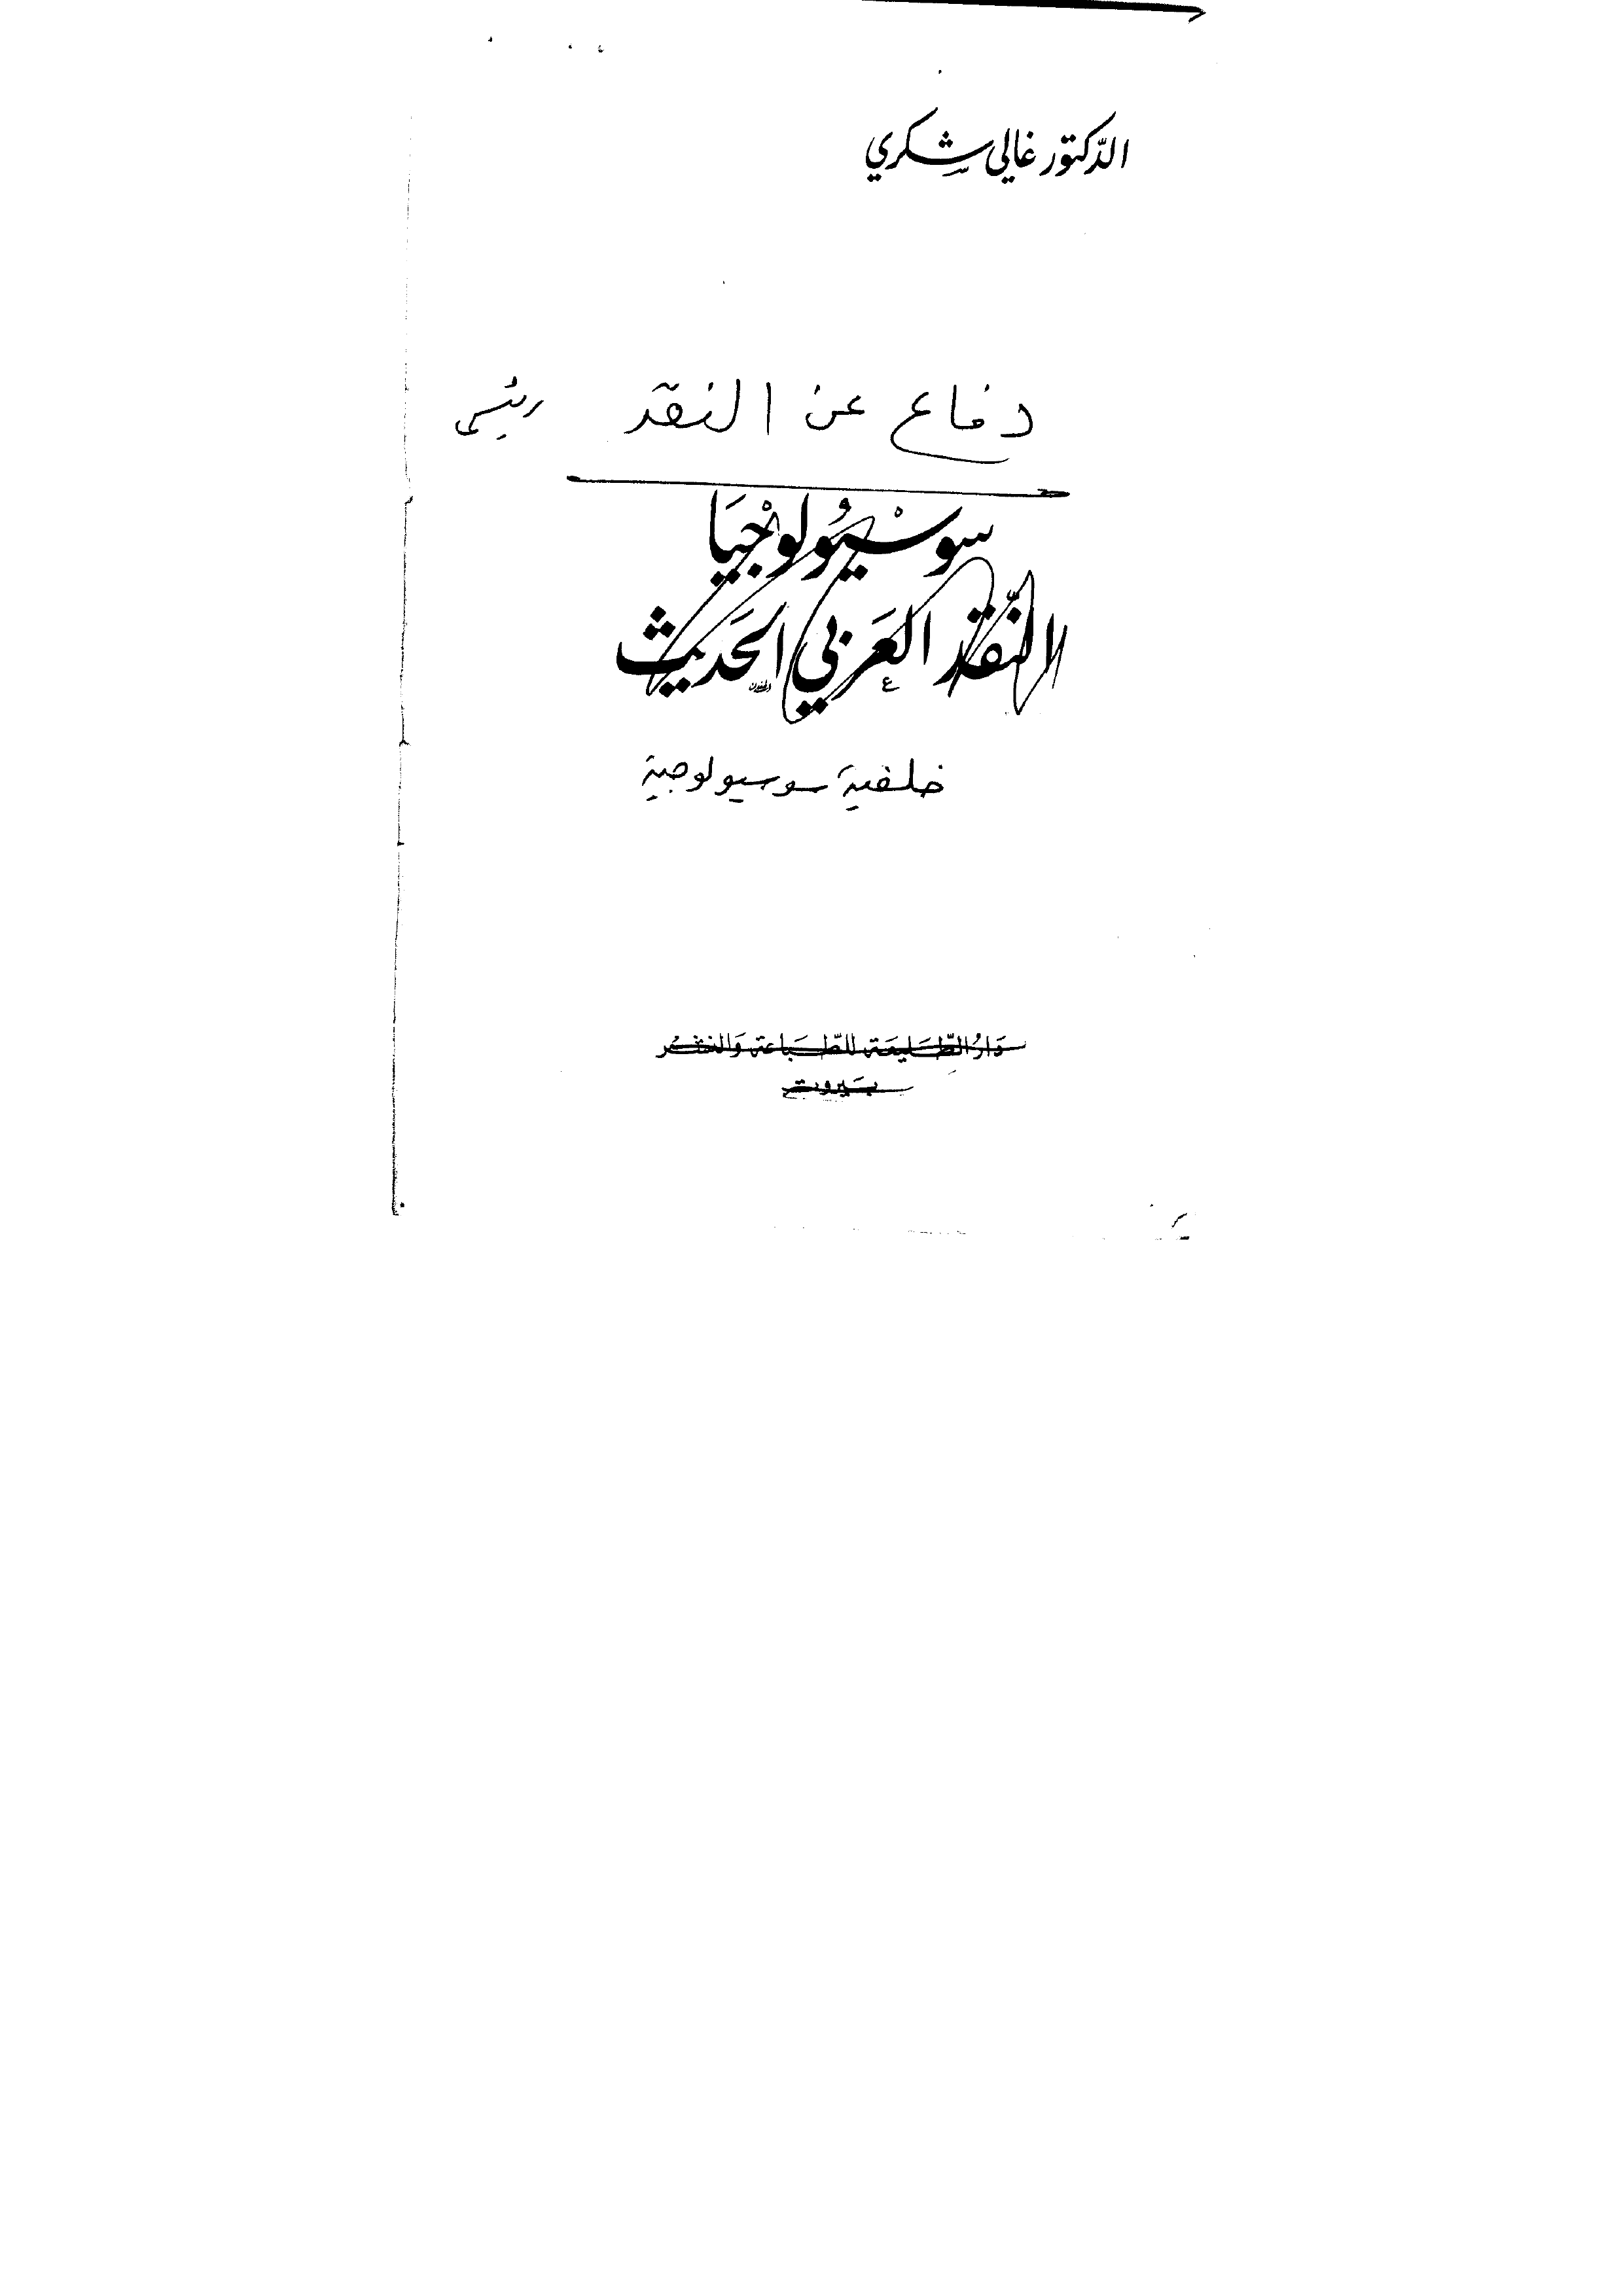 الدّكتور غالي شكري
دفاع عن النقد رئيسى
سوسْيُولوْجيَا
النّقد العَربي الحَديث
خلفية سوسيولوجية
دَارُ الطَّليعَة للطّبَاعة وَالنشر
بَيروت